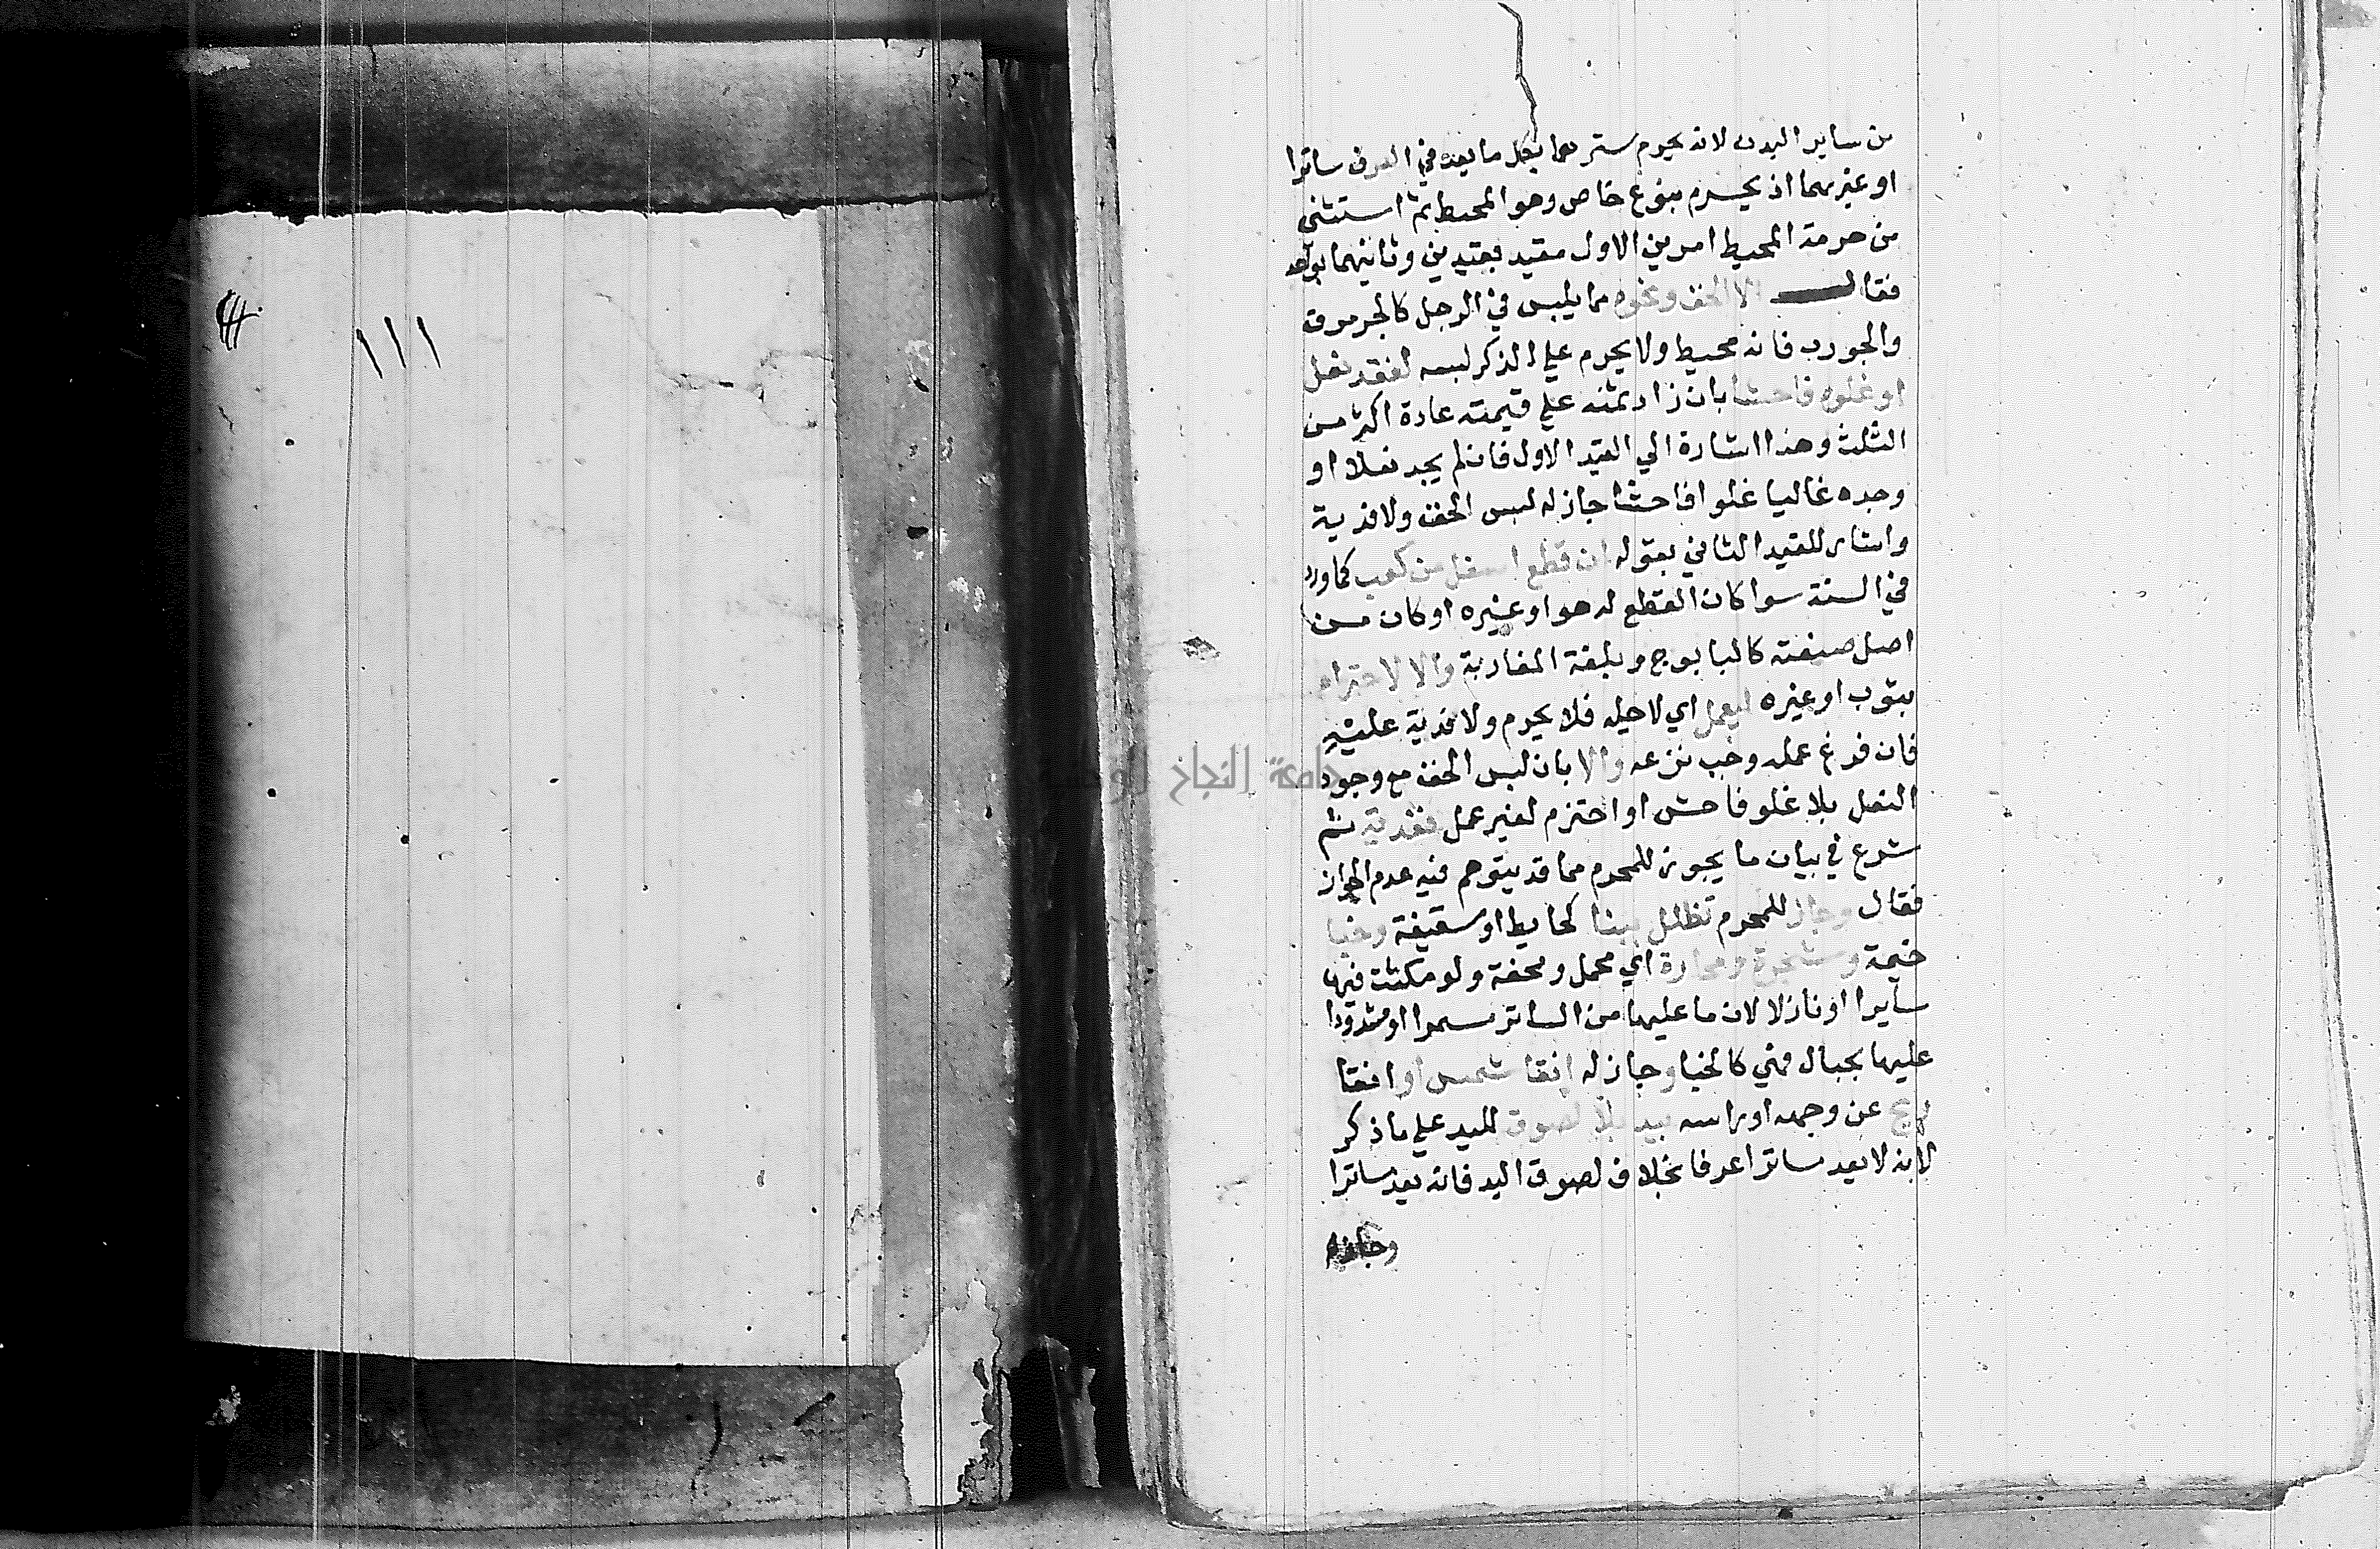 من ساير البدن لانه يحرم سترهما بكل ما يعد في العرف ساترا
او غيرهما اذ يحرم بنوع خاص وهو المحيط ثم استثنى
من حرمة المحيط امرين الاول مقيد بقيدين وثانيهما بواحد
فقال الا الخف ونحوه مما يلبس في الرجل كالجرموق
والجورب فانه محيط ولا يحرم علي الذكر لبسه لفقد نعل
او غلوه فاحشا بان زاد ثمنه علي قيمته عادة اكثر من
الثلث وهذا اشارة الي القيد الاول فان لم يجد نعلا او
وجده غاليا غلوا فاحشا جاز له لبس الخف ولا فدية
واشار للقيد الثاني بقوله ان قطع اسفل من كعب كما ورد
في السنة سوا كان القطع له هو او غيره او كان من
اصل صنعته كالبابوج وبلغة المغاربة والا لاحتزام
بثوب او غيره لعمل اي لاجله فلا يحرم ولا فدية عليه
فان فرغ عمله وجب نزعه والا بان لبس الخف مع وجود
النعل بلا غلو فاحش او احتزم لغير عمل ففدية ثم
شرع في بيان ما يجوز للمحرم مما قد يتوهم فيه عدم الجواز
فقال وجاز للمحرم تظلل ببنا كحايط او سقيفة وخبا
خيمة وشجرة ومحارة اي محمل ومحفة ولو مكثت فيها
سايرا او نازلا لان ما عليها من الساتر مسمرا او مشدودا
عليها بحبال فهي كالخبا وجاز له اتقا شمس او اتقا
ريح عن وجهه او راسه بيد بلا لصوق لليد علي ما ذكر
لانه لا يعد ساترا عرفا بخلاف لصوق اليد فانه يعد ساترا
وجاز
١١١
جامعة النجاح الوطنية